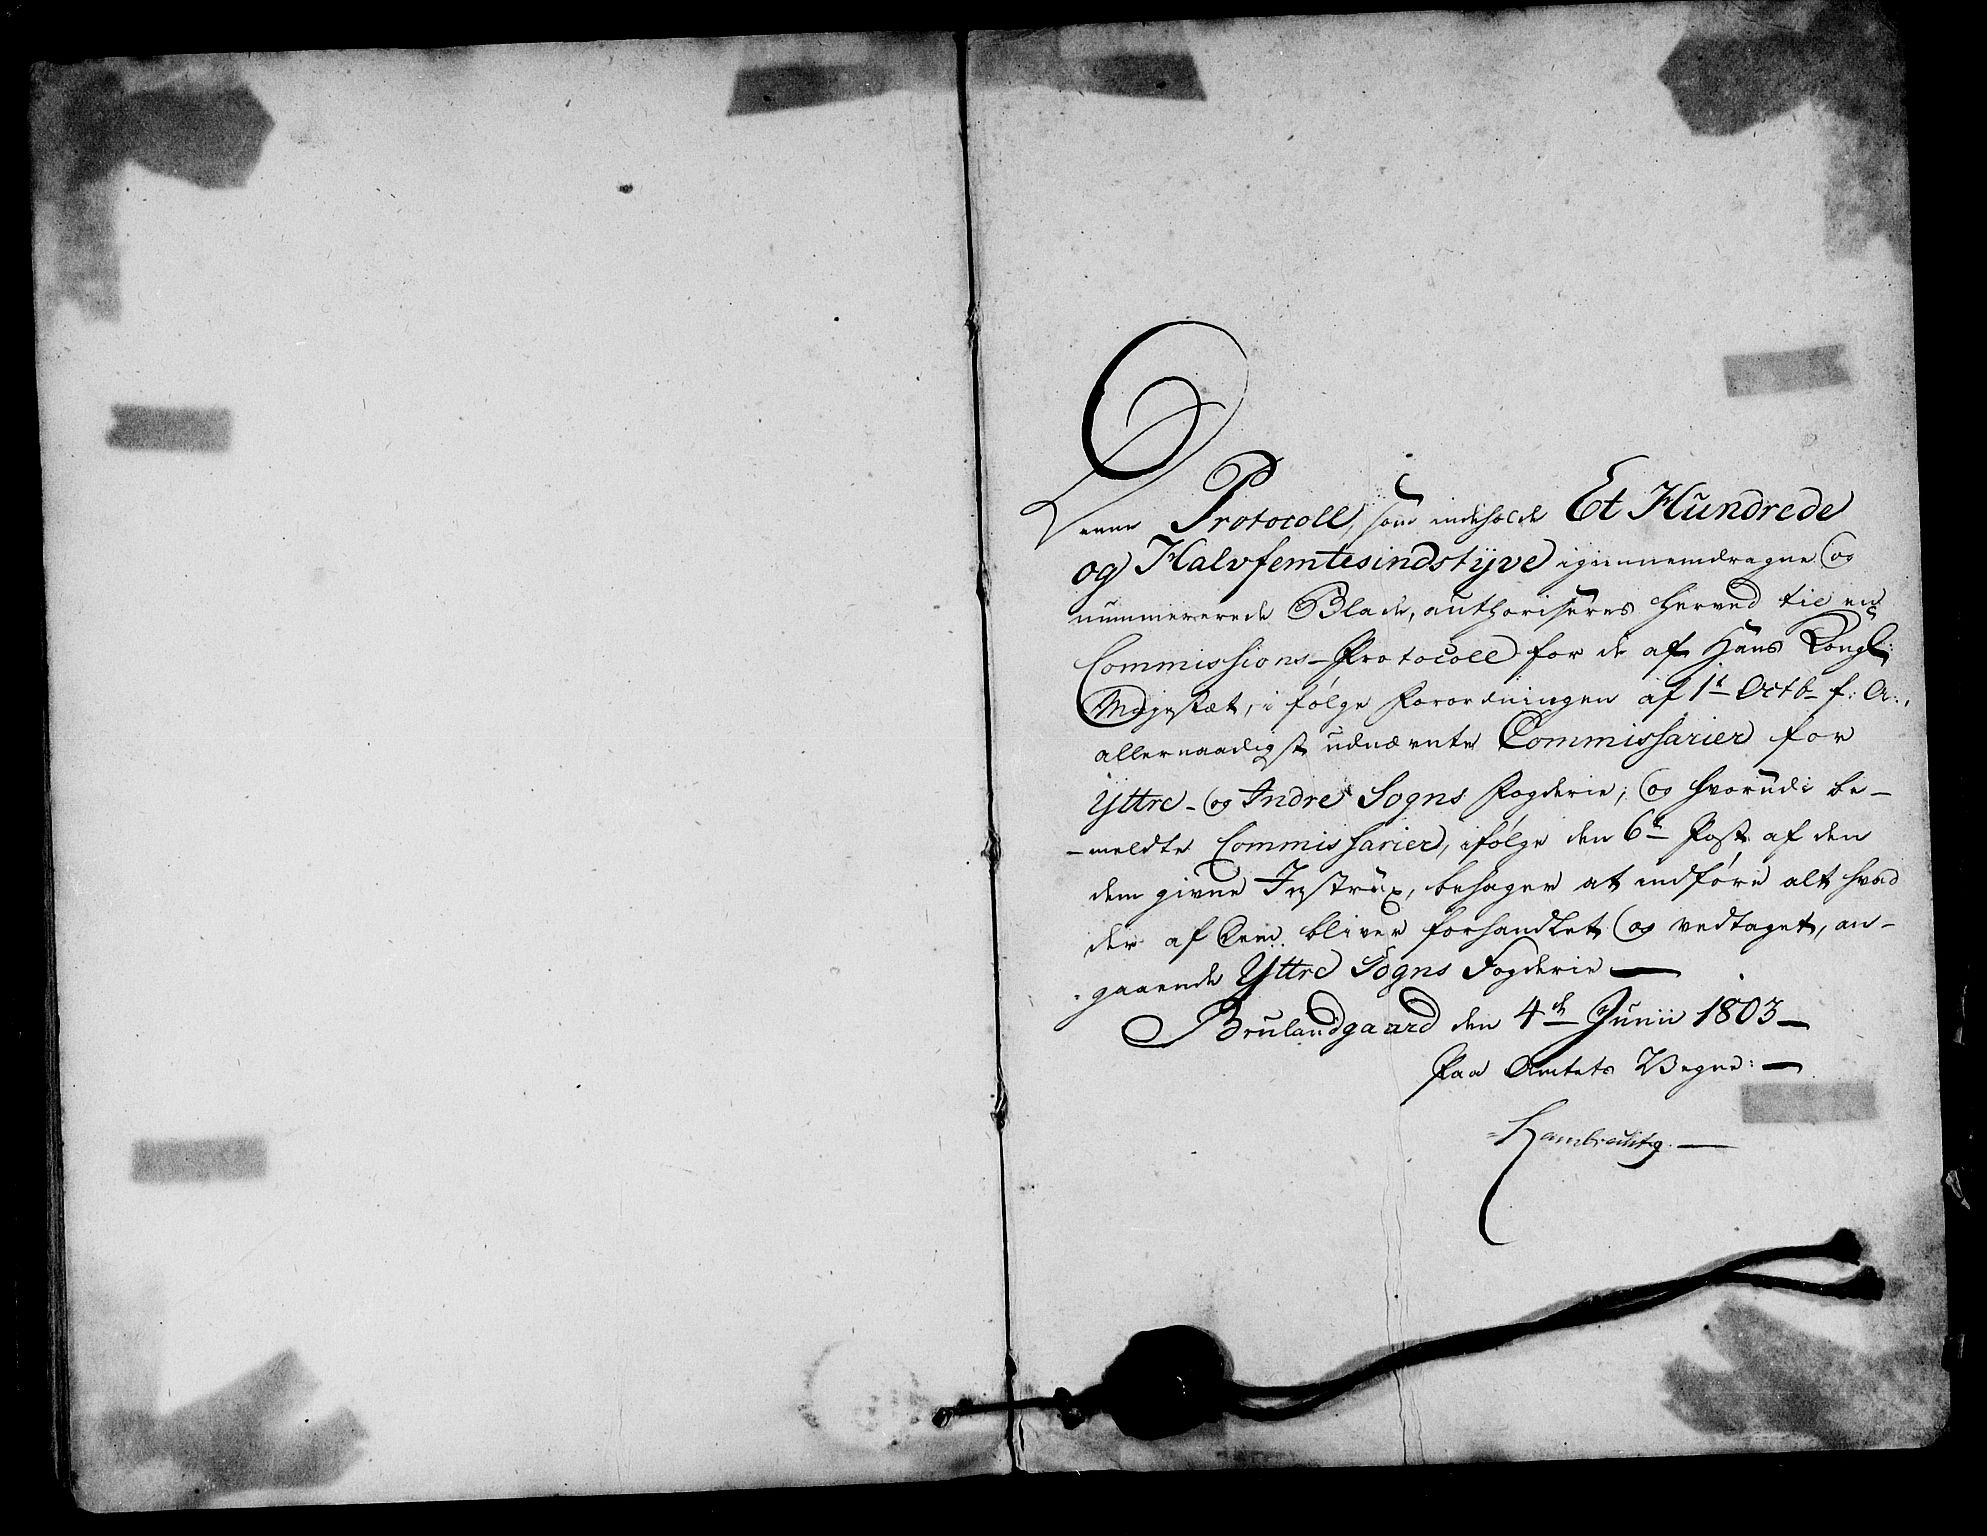 Denne Protocoll, som indeholde Et Hundrede
og Halvfemtesindstyve igiennemdragne og
nummererede Blade, authoriseres herved til en
Commissions-Protocoll for de af Hans Kongl:
Majestæt, i følge Forordningen af 1t Octb. f: A:,
allernaadigst udnævnte Commissarier for
Yttre- og Indre Sogns Fogderie; og hvorudi be-
-meldte Commissarier, ifølge den 6te Post af den
dem givne Instrux, behager at indføre alt hvad
der af Dem bliver forhandlet og vedtaget, an-
-gaaende Yttre Sogns Fogderie —
Brulandgaard den 4de Junii 1803 —
Paa Amtets Vegne: —